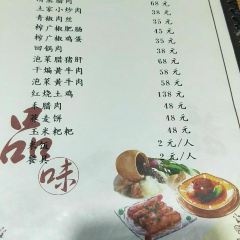 腊肉 68 元
土家小炒肉 38 元
青椒肉丝 35 元
榨广椒肥肠 45 元
榨广椒鸡蛋 35 元
回锅肉 38 元
泡菜腊猪肝 38 元
干煸黄牛肉 58 元
泡菜黄牛肉 58 元
红烧土鸡 138 元
腊肉 48 元
荞麦饼 48 元
玉米粑粑 48 元
2 元/人
2 元/人
品味